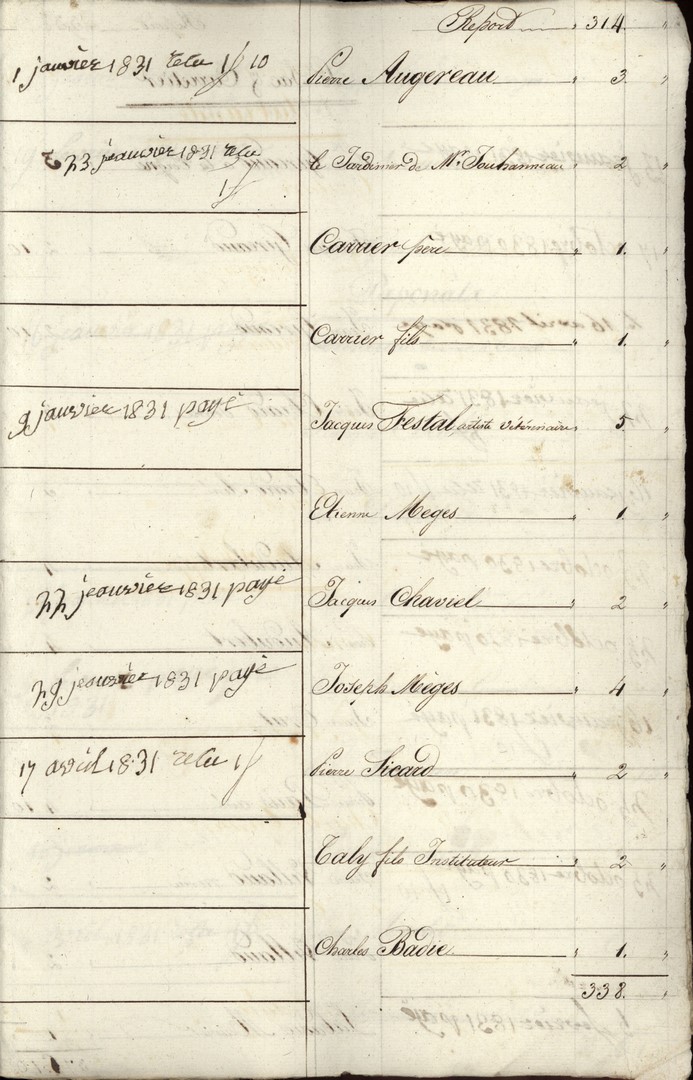 Report " 314. "
1 janvier 1831 recu 1f 10 Pierre Augereau " 3. "
23 jeanvier 1831 recu le Jardinier de Mr. Jouhanneau " 2 "
1f
Carrier père " 1. "
Carrier fils " 1. "
9 janvier 1831 payé Jacques Festal artiste vétérinaire " 5. "
Etienne Meges " 1. "
22 jeanvier 1831 payé Jacques Chaviel " 2 "
29 jeanvier 1831 payé Joseph Mèges " 4 "
17 avril 1831 recu 1f Pierre Sicard " 2 "
Taly fils Instituteur " 2 "
Charles Badie " 1. "
338. "